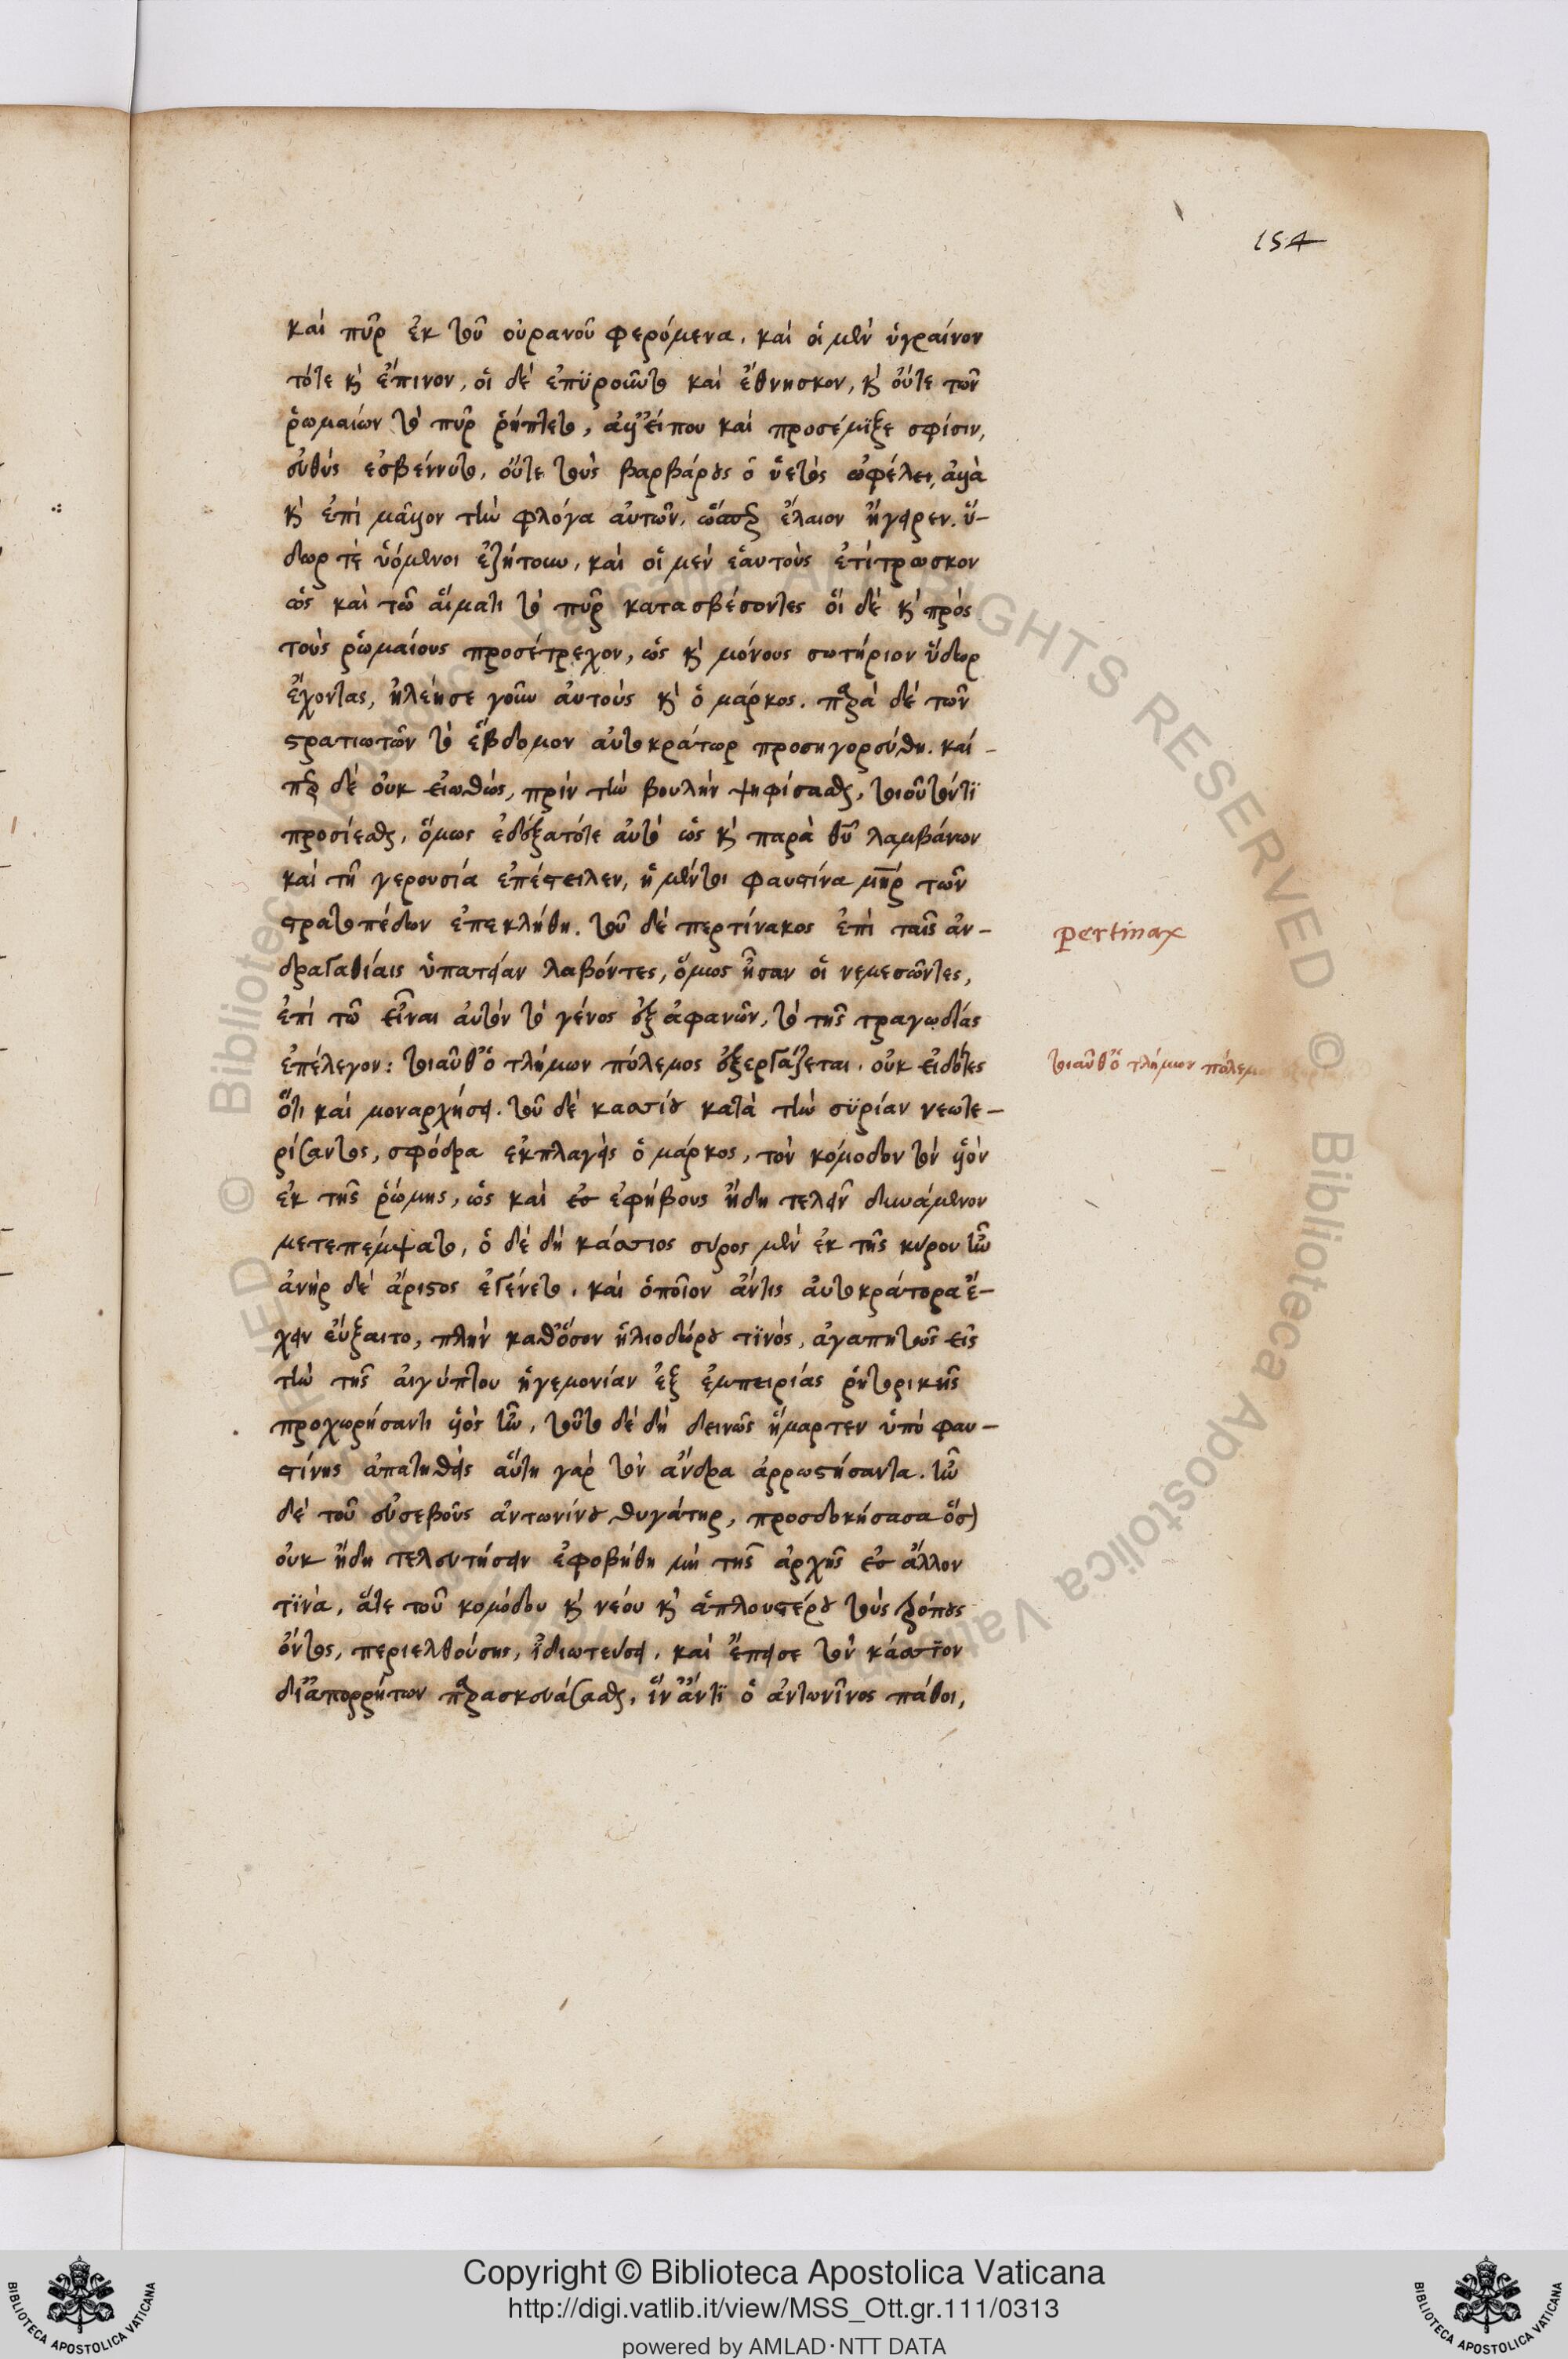 154
καὶ πῦρ ἐκ τοῦ οὐρανοῦ φερόμενα. καὶ οἱ μὲν ὑγραίνον
τότε κ̀ ἔπινον, οἱ δὲ ἐπϋροῦντο καὶ ἔθνησκον, κ̀ οὔτε τῶν
ῥωμαίων τὸ πῦρ ῥήπτετο, ἀλλ' εἴ που καὶ προσέμϊξε σφίσιν,
εὐθὺς ἐσβέννυτο. οὔτε τοὺς βαρβάρους ὁ ὑετὸς ὠφέλει, ἀλλὰ
κ̀ ἐπὶ μᾶλλον τὴν φλόγα αὐτῶν, ὥσπερ ἔλαιον ἤγειρεν. ὕ-
δωρ τὲ ὑόμενοι ἐζήτουν, καὶ οἱ μὲν ἑαυτοὺς ἐτίτρωσκον
ὡς καὶ τῶ αἵματι τὸ πῦρ κατασβέσοντες οἱ δὲ κ̀ πρὸς
τοὺς ῥωμαίους προσέτρεχον, ὡς κ̀ μόνους σωτήριον ὕδωρ
ἔχοντας, ἠλέησε γοῦν αὐτοὺς κ̀ ὁ μάρκος. παρὰ δὲ τῶν
στρατιωτῶν τὸ ἕβδομον αὐτοκράτωρ προσηγορεύθη. καί-
περ δὲ οὐκ εἰωθὼς, πρὶν τὴν βουλὴν ψηφίσασθαι, τοιοῦτόν τϊ
προσίεσθαι, ὅμως ἐδέξατό τε αὐτὸ ὡς κ̀ παρὰ θυ λαμβάνων
καὶ τῆ γερουσία ἐπέστειλεν, ἡ μέντοι φαυστίνα μηρ τῶν
στρατοπέδων ἐπεκλήθη. τοῦ δὲ περτίνακος ἐπὶ ταῖς ἀν-
Pertinax
δραγαθίαις ὑπατείαν λαβόντες, ὅμως ἦσαν οἱ νεμεσῶντες,
ἐπὶ τῶ εἶναι αὐτὸν τὸ γένος ἐξ ἀφανῶν, τὸ τῆς τραγωδίας
ἐπέλεγον: τοιαῦθ' ὁ τλήμων πόλεμος ἐξεργάζεται. οὐκ εἰδότες
τοιαῦθ' ὁ τλήμων πόλεμο
ὅτι καὶ μοναρχήσει. τοῦ δὲ κασσίου κατὰ τὴν σϋρίαν νεωτε-
ρίσαντος, σφόδρα ἐκπλαγεὶς ὁ μάρκος, τὸν κόμοδον τὸν υἱὸν
ἐκ τῆς ῥώμης, ὡς καὶ ἐς ἐφήβους ἤδη τελεῖν δυνάμενον
μετεπέμψατο, ὁ δὲ δὴ κάσσιος σύρος μὲν ἐκ τῆς κύρου ἦν
ἀνὴρ δὲ ἄριστος ἐγένετο, καὶ ὁποῖον ἄν τις αὐτοκράτορα ἔ-
χειν εὔξαιτο, πλὴν καθ' ὅσον ἡλιοδώρου τϊνὸς, ἀγαπητῶς εἰς
τὴν τῆς αἰγύπτου ἡγεμονίαν ἐξ ἐμπειρίας ῥητορικῆς
προχωρήσαντι υἱὸς ἦν, τοῦτο δὲ δὴ δεινῶς ἥμαρτεν ὑπὸ φαυ-
στίνης ἀπατηθεὶς αὕτη γὰρ τὸν ἄνδρα ἀρρωστήσαντα. ἦν
δὲ τοῦ εὐσεβοῦς ἀντωνίνου θυγάτηρ, προσδοκήσασα ὅσον
οὐκ ἤδη τελευτήσειν ἐφοβήθη μὴ τῆς ἀρχῆς ἐς ἄλλον
τϊνὰ, ἅτε τοῦ κομόδου κ̀ νέου κ̀ ἁπλουστέρου τοὺς τρόπους
ὄντος, περιελθούσης, ἰδιωτεύσει. καὶ ἔπεισε τὸν κάσσϊον
δι' ἀπορρήτων παρασκευάσασθαι, ἵν' ἄν τϊ ὁ ἀντωνῖνος πάθοι,
Copyright © Biblioteca Apostolica Vaticana
http://digi.vatlib.it/view/MSS_Ott.gr.111/0313
powered by AMLAD·NTT DATA